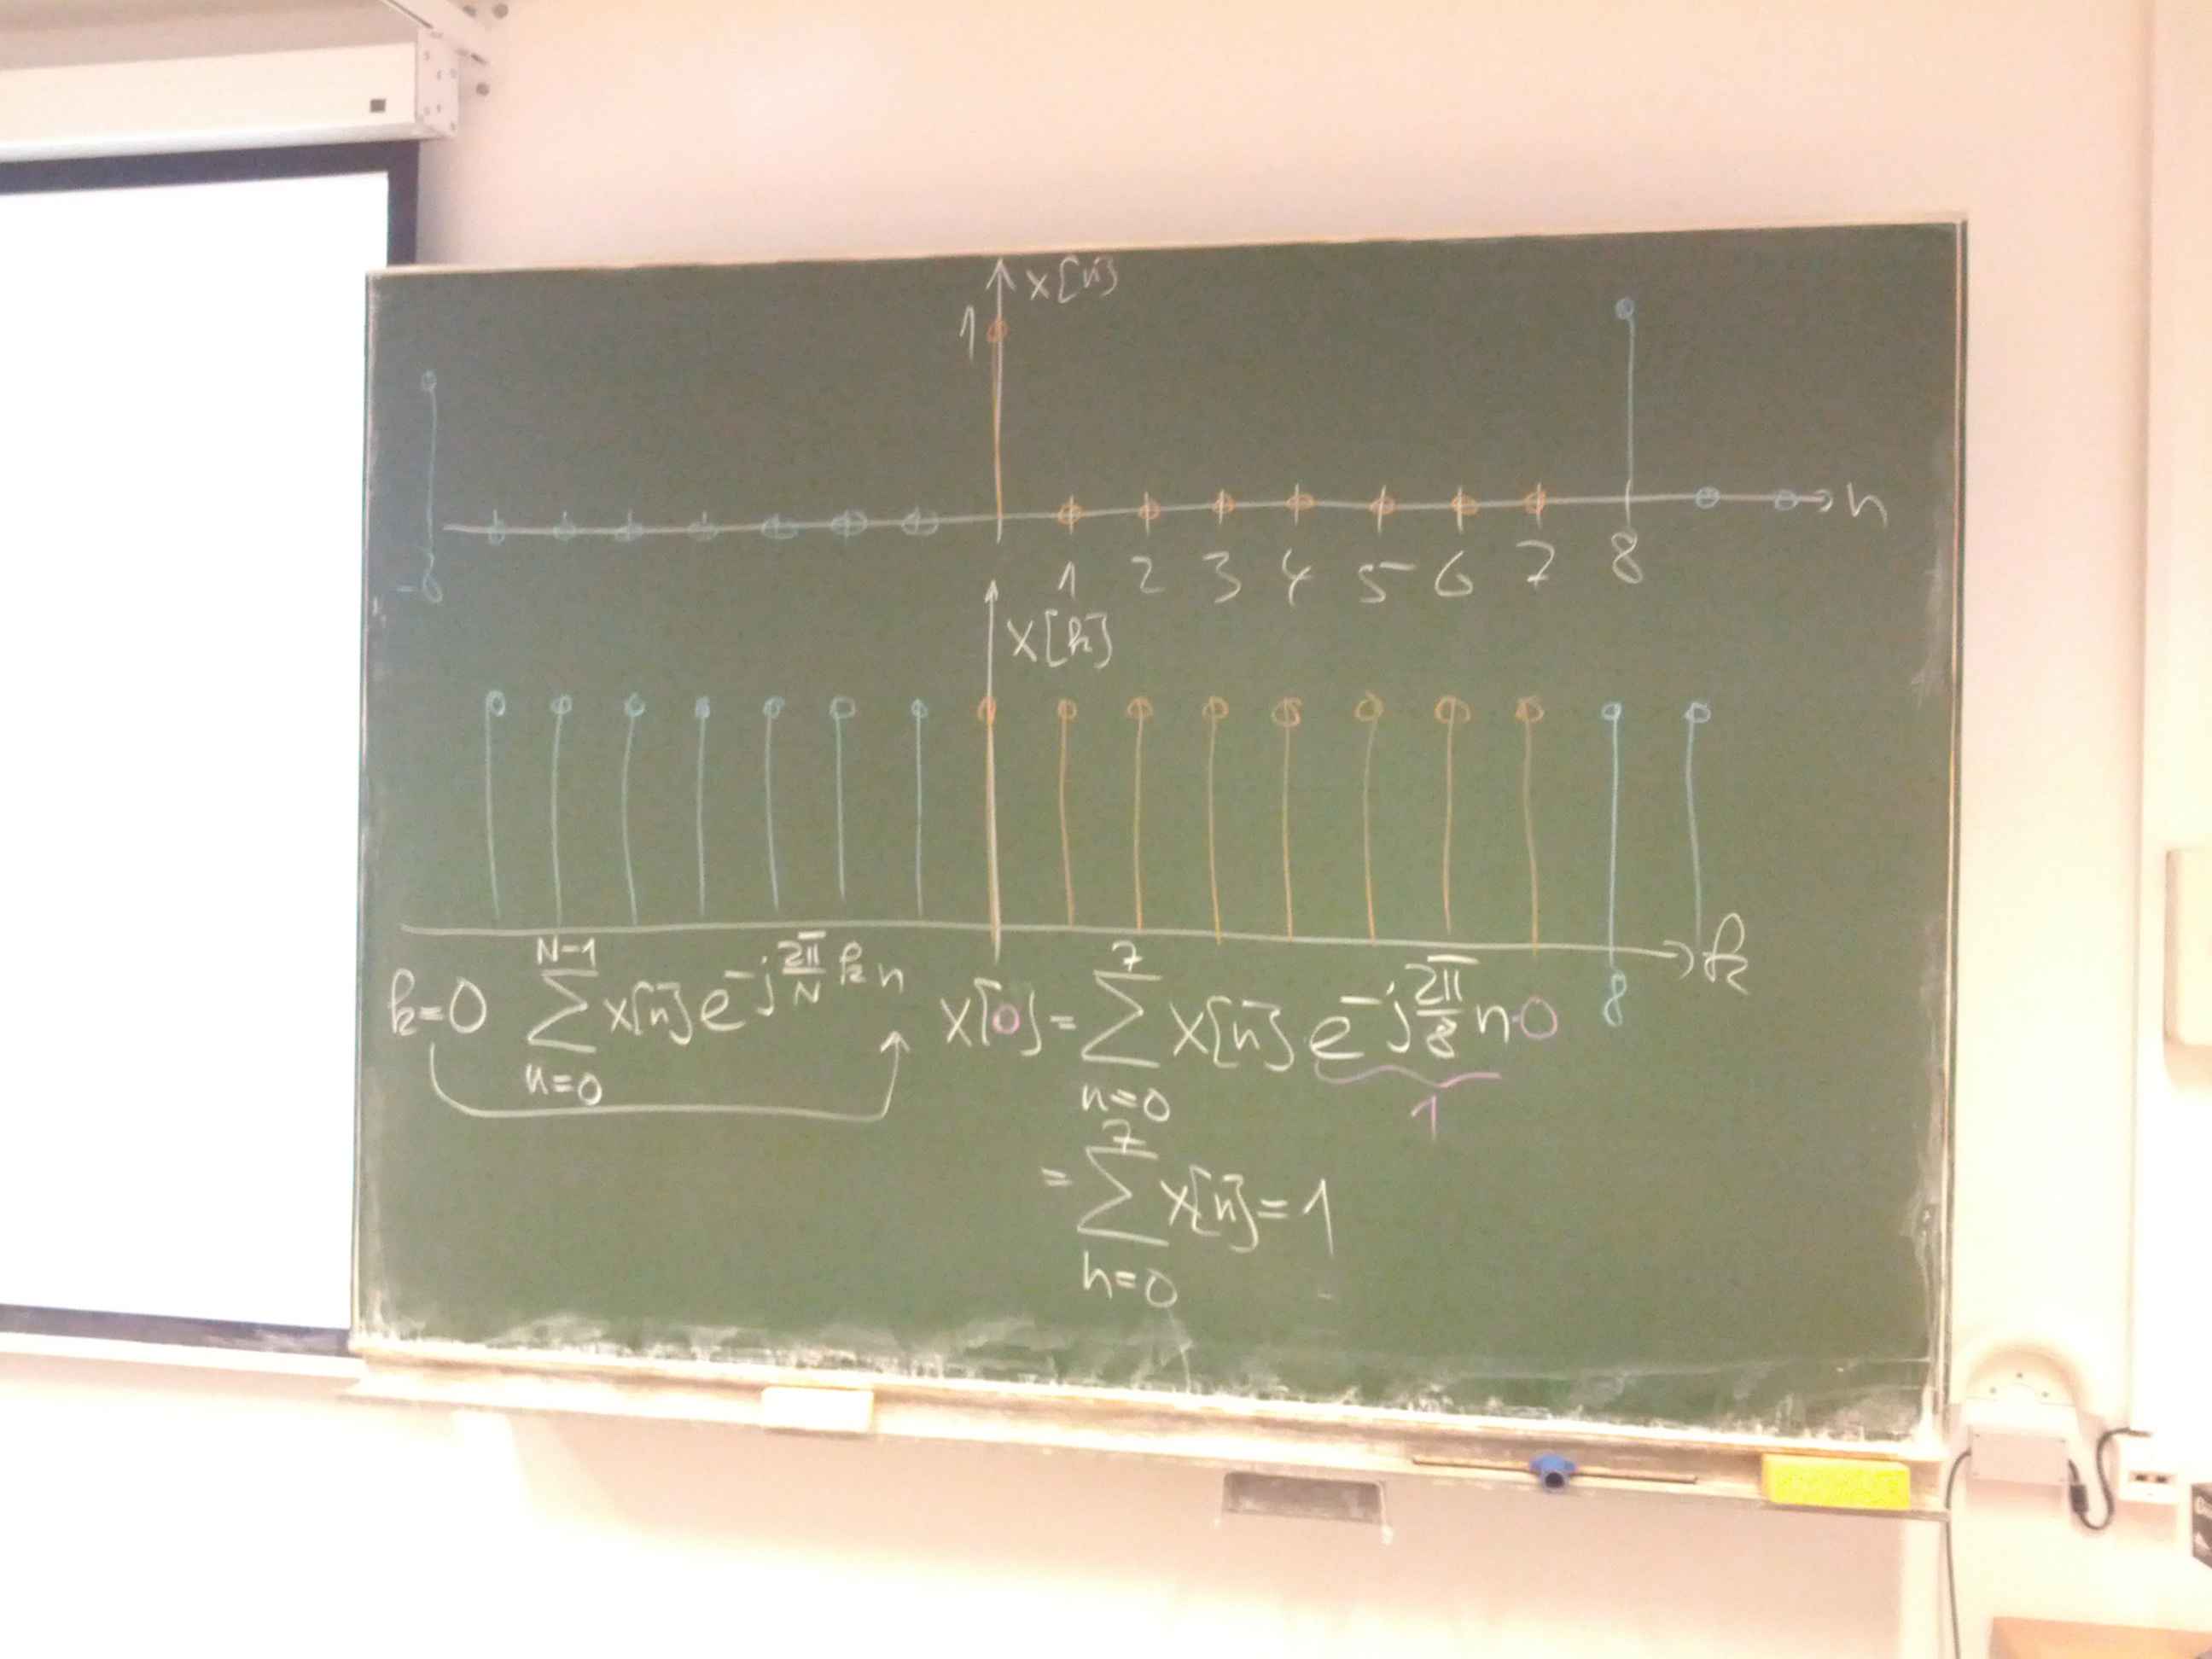 x[n]
1
n
-8 1 2 3 4 5 6 7 8
X[k]
k
8
k=0 \sum_{n=0}^{N-1} x[n] e^{-j\frac{2π}{N}kn} X[0] = \sum_{n=0}^{7} x[n] e^{-j\frac{2π}{8}n·0}
1
= \sum_{n=0}^{7} x[n] = 1